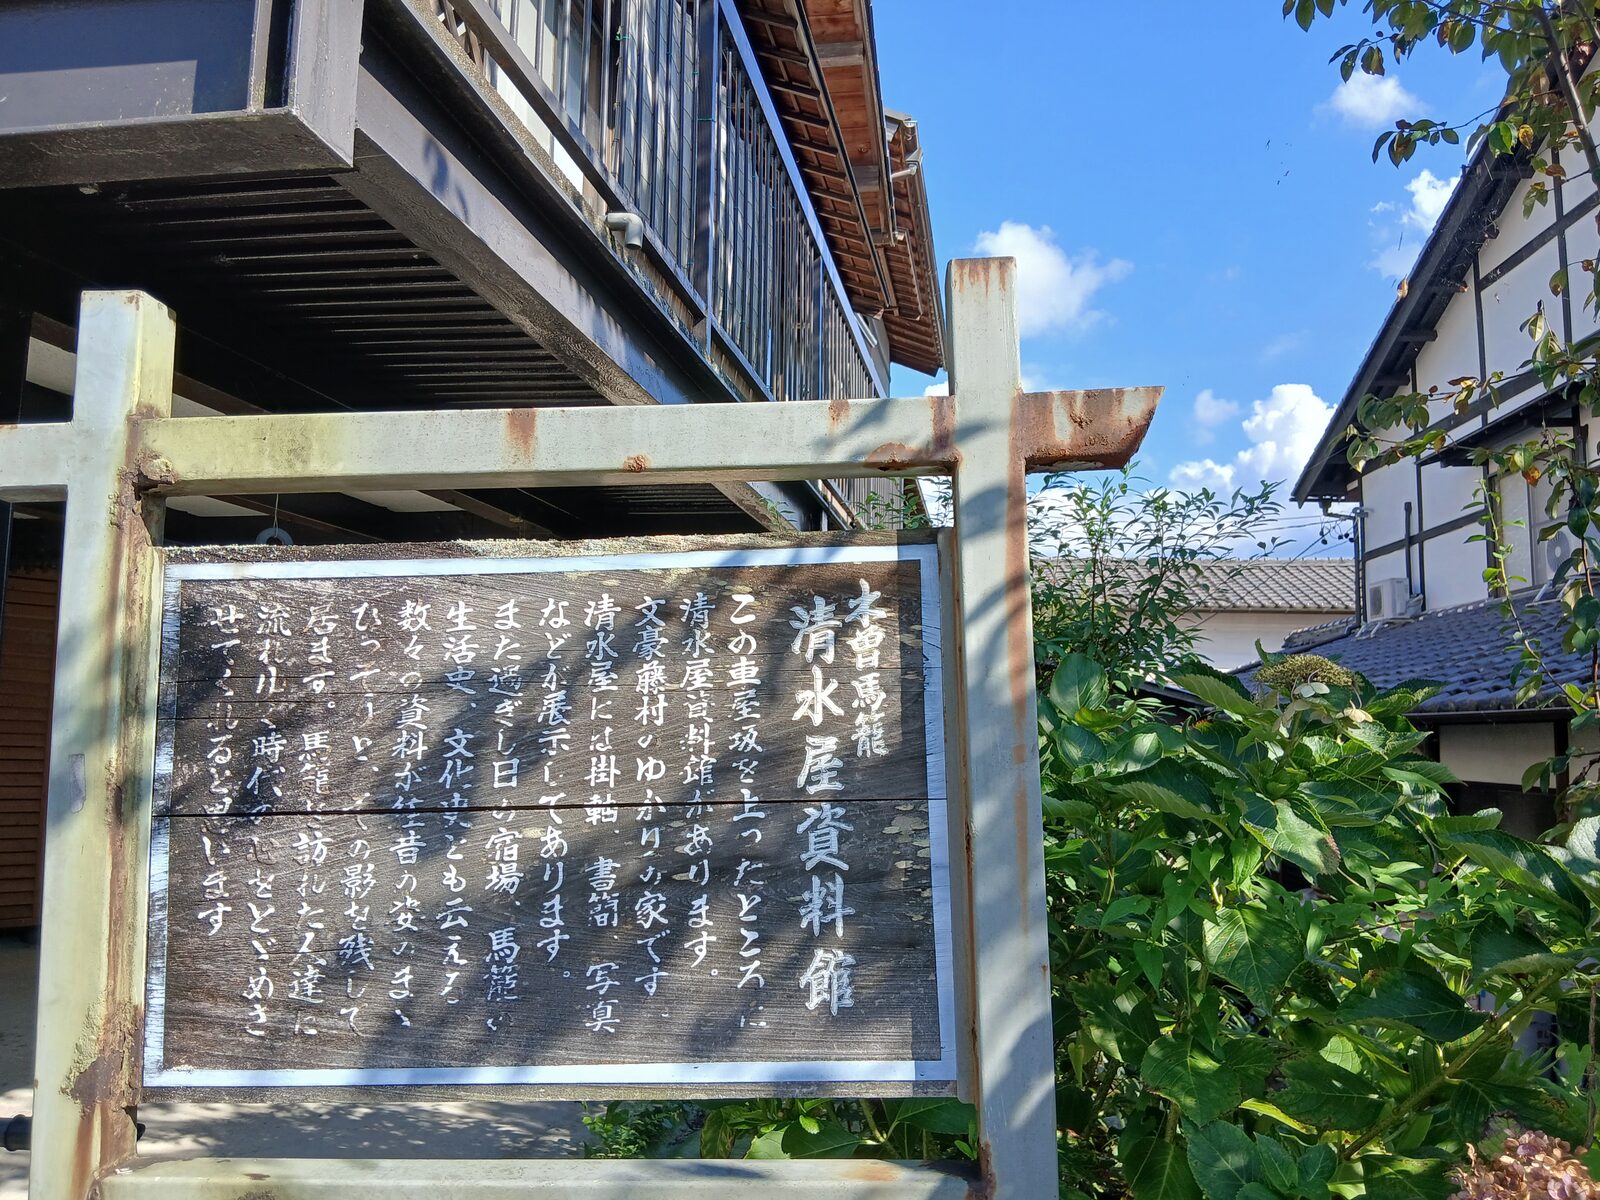 木曽馬籠
清水屋資料館
この車屋坂を上ったところに
清水屋資料館があります。
文豪藤村のゆかりの家です
清水屋には掛軸、書簡、写真
などが展示してあります。
また過ぎし日の宿場、馬籠の
生活史、文化史とも云える
数々の資料が往昔の姿のまゝ
ひっそりと、その影を残して
居ます。馬籠を訪れた人達に
流れ行く時代の心をとゞめさ
せてくれると思います